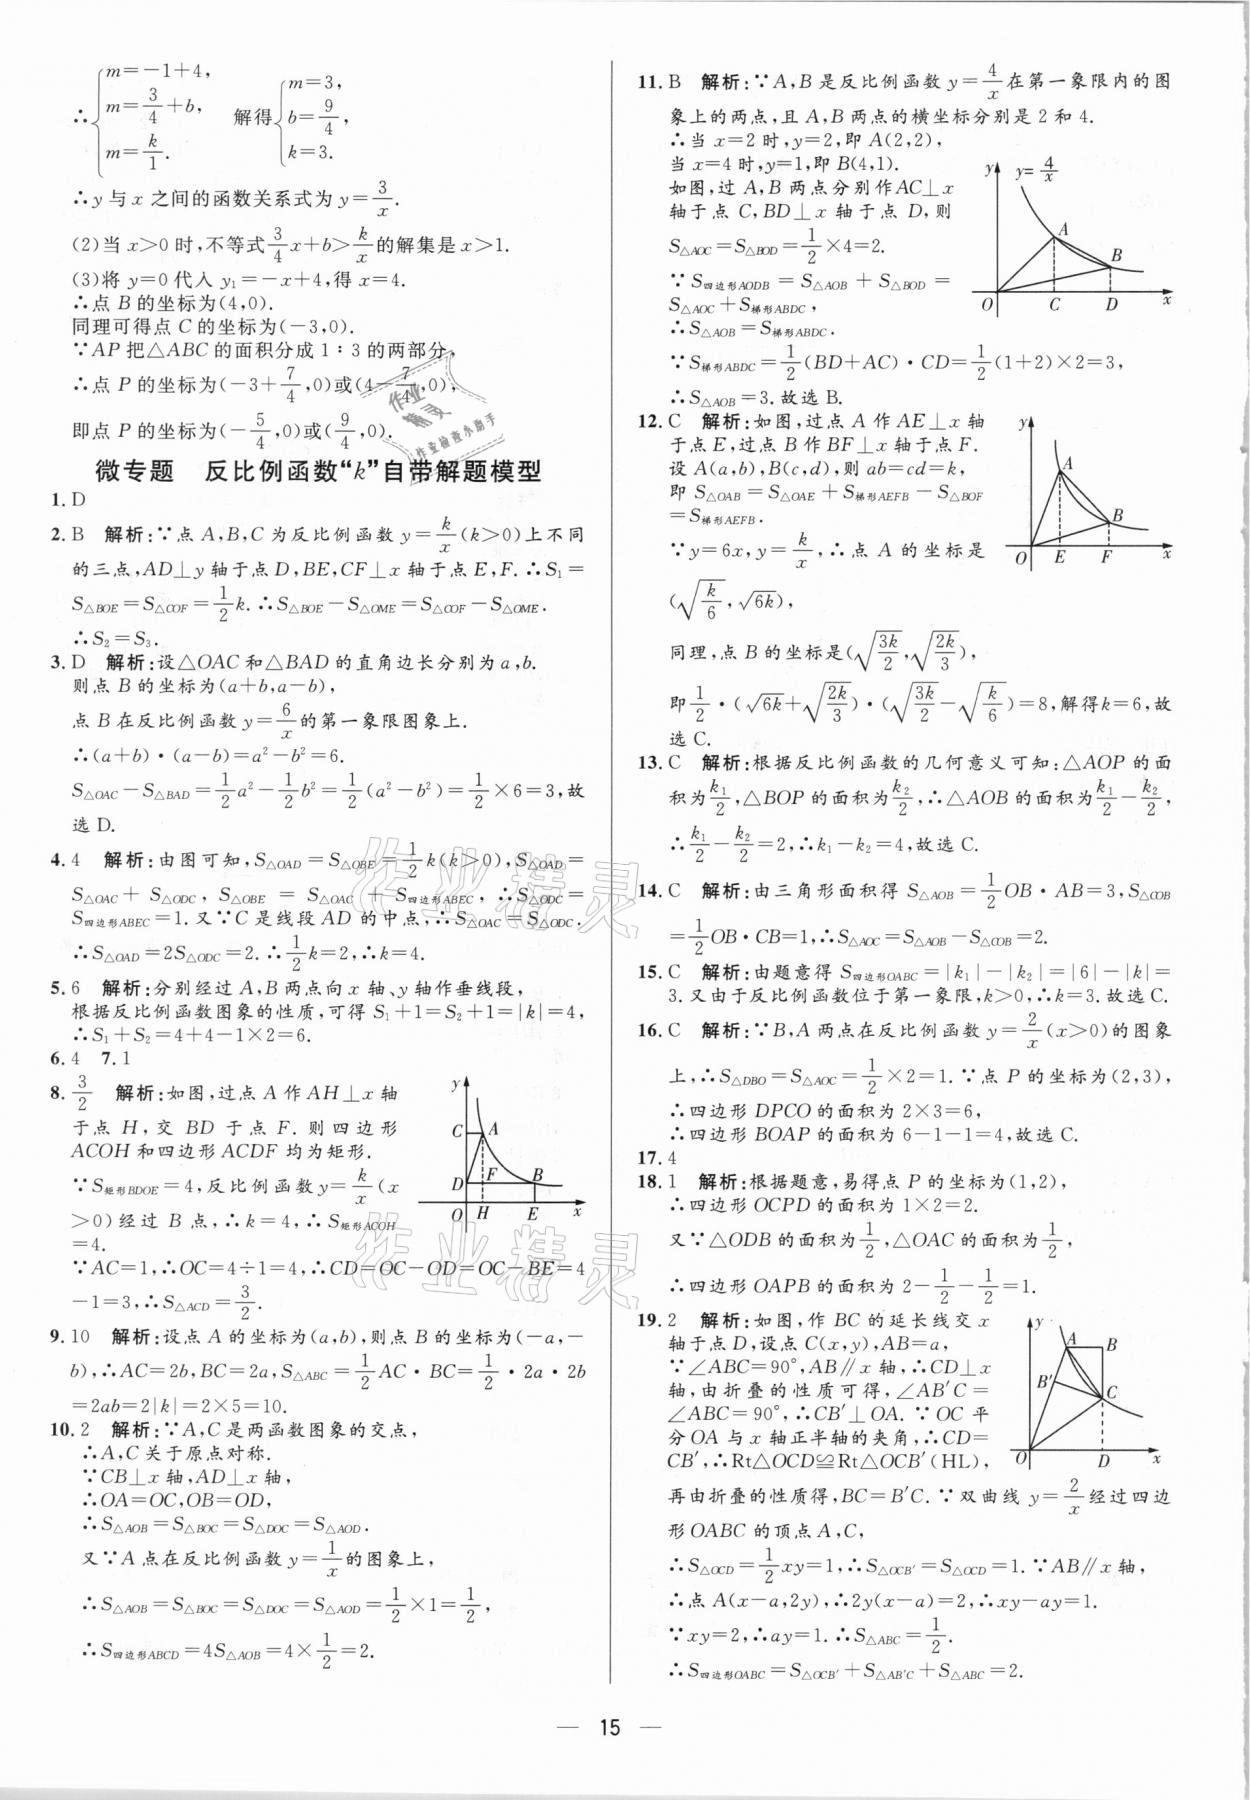 ∴{m=-1+4, m=3/4+b, m=k/1. 解得{m=3, b=9/4, k=3.
∴y与x之间的函数关系式为y=3/x.
(2)当x>0时,不等式3/4x+b>k/x的解集是x>1.
(3)将y=0代入y₁=-x+4,得x=4.
∴点B的坐标为(4,0).
同理可得点C的坐标为(-3,0).
∵AP把△ABC的面积分成1∶3的两部分,
∴点P的坐标为(-3+7/4,0)或(4-7/4,0),
即点P的坐标为(-5/4,0)或(9/4,0).
微专题 反比例函数“k”自带解题模型
1.D
2.B 解析:∵点A,B,C为反比例函数y=k/x(k>0)上不同
的三点,AD⊥y轴于点D,BE,CF⊥x轴于点E,F.∴S₁=
S△BOE=S△COF=1/2k.∴S△BOE-S△OME=S△COF-S△OME.
∴S₂=S₃.
3.D 解析:设△OAC和△BAD的直角边长分别为a,b.
则点B的坐标为(a+b,a-b),
点B在反比例函数y=6/x的第一象限图象上.
∴(a+b)·(a-b)=a²-b²=6.
S△OAC-S△BAD=1/2a²-1/2b²=1/2(a²-b²)=1/2×6=3,故
选D.
4.4 解析:由图可知,S△OAD=S△OBE=1/2k(k>0),S△OAD=
S△OAC+S△ODC,S△OBE=S△OAC+S四边形ABEC,∴S△ODC=
S四边形ABEC=1.又∵C是线段AD的中点,∴S△OAC=S△ODC.
∴S△OAD=2S△ODC=2.∴1/2k=2,∴k=4.
5.6 解析:分别经过A,B两点向x轴、y轴作垂线段,
根据反比例函数图象的性质,可得S₁+1=S₂+1=|k|=4,
∴S₁+S₂=4+4-1×2=6.
6.4 7.1
8.3/2 解析:如图,过点A作AH⊥x轴
于点H,交BD于点F.则四边形
ACOH和四边形ACDF均为矩形.
∵S矩形BDOE=4,反比例函数y=k/x(x
>0)经过B点,∴k=4,∴S矩形ACOH
=4.
y C A D F B O H E x
∵AC=1,∴OC=4÷1=4,∴CD=OC-OD=OC-BE=4
-1=3,∴S△ACD=3/2.
9.10 解析:设点A的坐标为(a,b),则点B的坐标为(-a,-
b),∴AC=2b,BC=2a,S△ABC=1/2AC·BC=1/2·2a·2b
=2ab=2|k|=2×5=10.
10.2 解析:∵A,C是两函数图象的交点,
∴A,C关于原点对称.
∵CB⊥x轴,AD⊥x轴,
∴OA=OC,OB=OD,
∴S△AOB=S△BOC=S△DOC=S△AOD.
又∵A点在反比例函数y=1/x的图象上,
∴S△AOB=S△BOC=S△DOC=S△AOD=1/2×1=1/2,
∴S四边形ABCD=4S△AOB=4×1/2=2.
11.B 解析:∵A,B是反比例函数y=4/x在第一象限内的图
象上的两点,且A,B两点的横坐标分别是2和4.
∴当x=2时,y=2,即A(2,2),
当x=4时,y=1,即B(4,1).
如图,过A,B两点分别作AC⊥x
轴于点C,BD⊥x轴于点D,则
S△AOC=S△BOD=1/2×4=2.
∵S四边形AODB=S△AOB+S△BOD=
S△AOC+S梯形ABDC,
∴S△AOB=S梯形ABDC.
y y=4/x A B O C D x
∵S梯形ABDC=1/2(BD+AC)·CD=1/2(1+2)×2=3,
∴S△AOB=3.故选B.
12.C 解析:如图,过点A作AE⊥x轴
于点E,过点B作BF⊥x轴于点F.
设A(a,b),B(c,d),则ab=cd=k,
即S△OAB=S△OAE+S梯形AEFB-S△BOF
=S梯形AEFB.
∵y=6x,y=k/x,∴点A的坐标是
(√(k/6),√(6k)),
y A B O E F x
同理,点B的坐标是(√(3k/2),√(2k/3)),
即1/2·(√(6k)+√(2k/3))·(√(3k/2)-√(k/6))=8,解得k=6,故
选C.
13.C 解析:根据反比例函数的几何意义可知:△AOP的面
积为k₁/2,△BOP的面积为k₂/2,∴△AOB的面积为k₁/2-k₂/2,
∴k₁/2-k₂/2=2,∴k₁-k₂=4,故选C.
14.C 解析:由三角形面积得S△AOB=1/2OB·AB=3,S△COB
=1/2OB·CB=1,∴S△AOC=S△AOB-S△COB=2.
15.C 解析:由题意得S四边形OABC=|k₁|-|k₂|=|6|-|k|=
3.又由于反比例函数位于第一象限,k>0,∴k=3.故选C.
16.C 解析:∵B,A两点在反比例函数y=2/x(x>0)的图象
上,∴S△DBO=S△AOC=1/2×2=1.∵点P的坐标为(2,3),
∴四边形DPCO的面积为2×3=6,
∴四边形BOAP的面积为6-1-1=4,故选C.
17.4
18.1 解析:根据题意,易得点P的坐标为(1,2),
∴四边形OCPD的面积为1×2=2.
又∵△ODB的面积为1/2,△OAC的面积为1/2,
∴四边形OAPB的面积为2-1/2-1/2=1.
19.2 解析:如图,作BC的延长线交x
轴于点D,设点C(x,y),AB=a,
∵∠ABC=90°,AB∥x轴,∴CD⊥x
轴,由折叠的性质可得,∠AB′C=
∠ABC=90°,∴CB′⊥OA.∵OC平
分OA与x轴正半轴的夹角,∴CD=
CB′,∴Rt△OCD≌Rt△OCB′(HL),
y A B B′ C O D x
再由折叠的性质得,BC=B′C.∵双曲线y=2/x经过四边
形OABC的顶点A,C,
∴S△OCD=1/2xy=1,∴S△OCB′=S△OCD=1.∵AB∥x轴,
∴点A(x-a,2y),∴2y(x-a)=2,∴xy-ay=1.
∵xy=2,∴ay=1.∴S△ABC=1/2.
∴S四边形OABC=S△OCB′+S△AB′C+S△ABC=2.
— 15 —
作业精灵
作业检查小助手
作业精灵
作业精灵